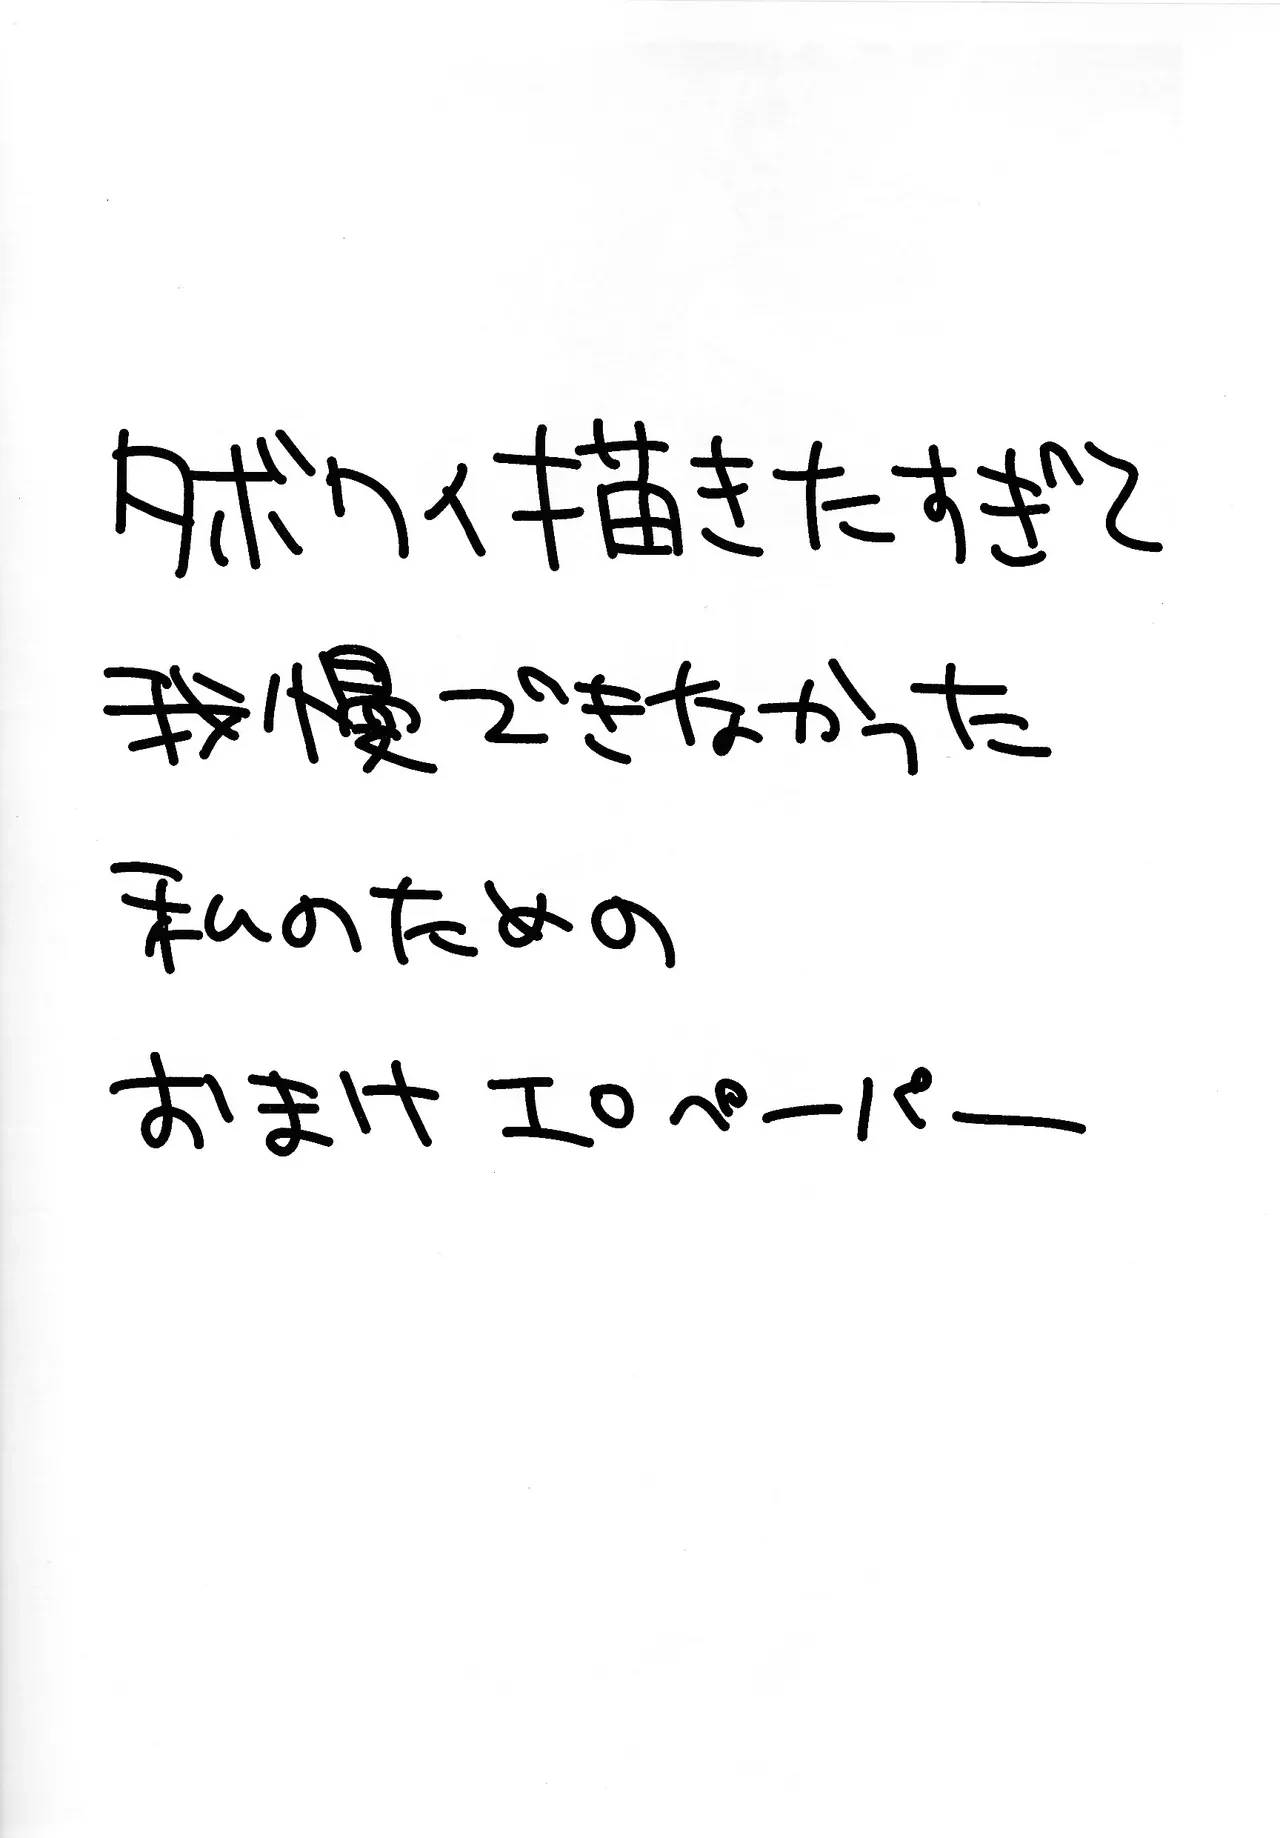 タボクィ描きたすぎて
我慢できなかった
私のための
おまけ エロペーパー